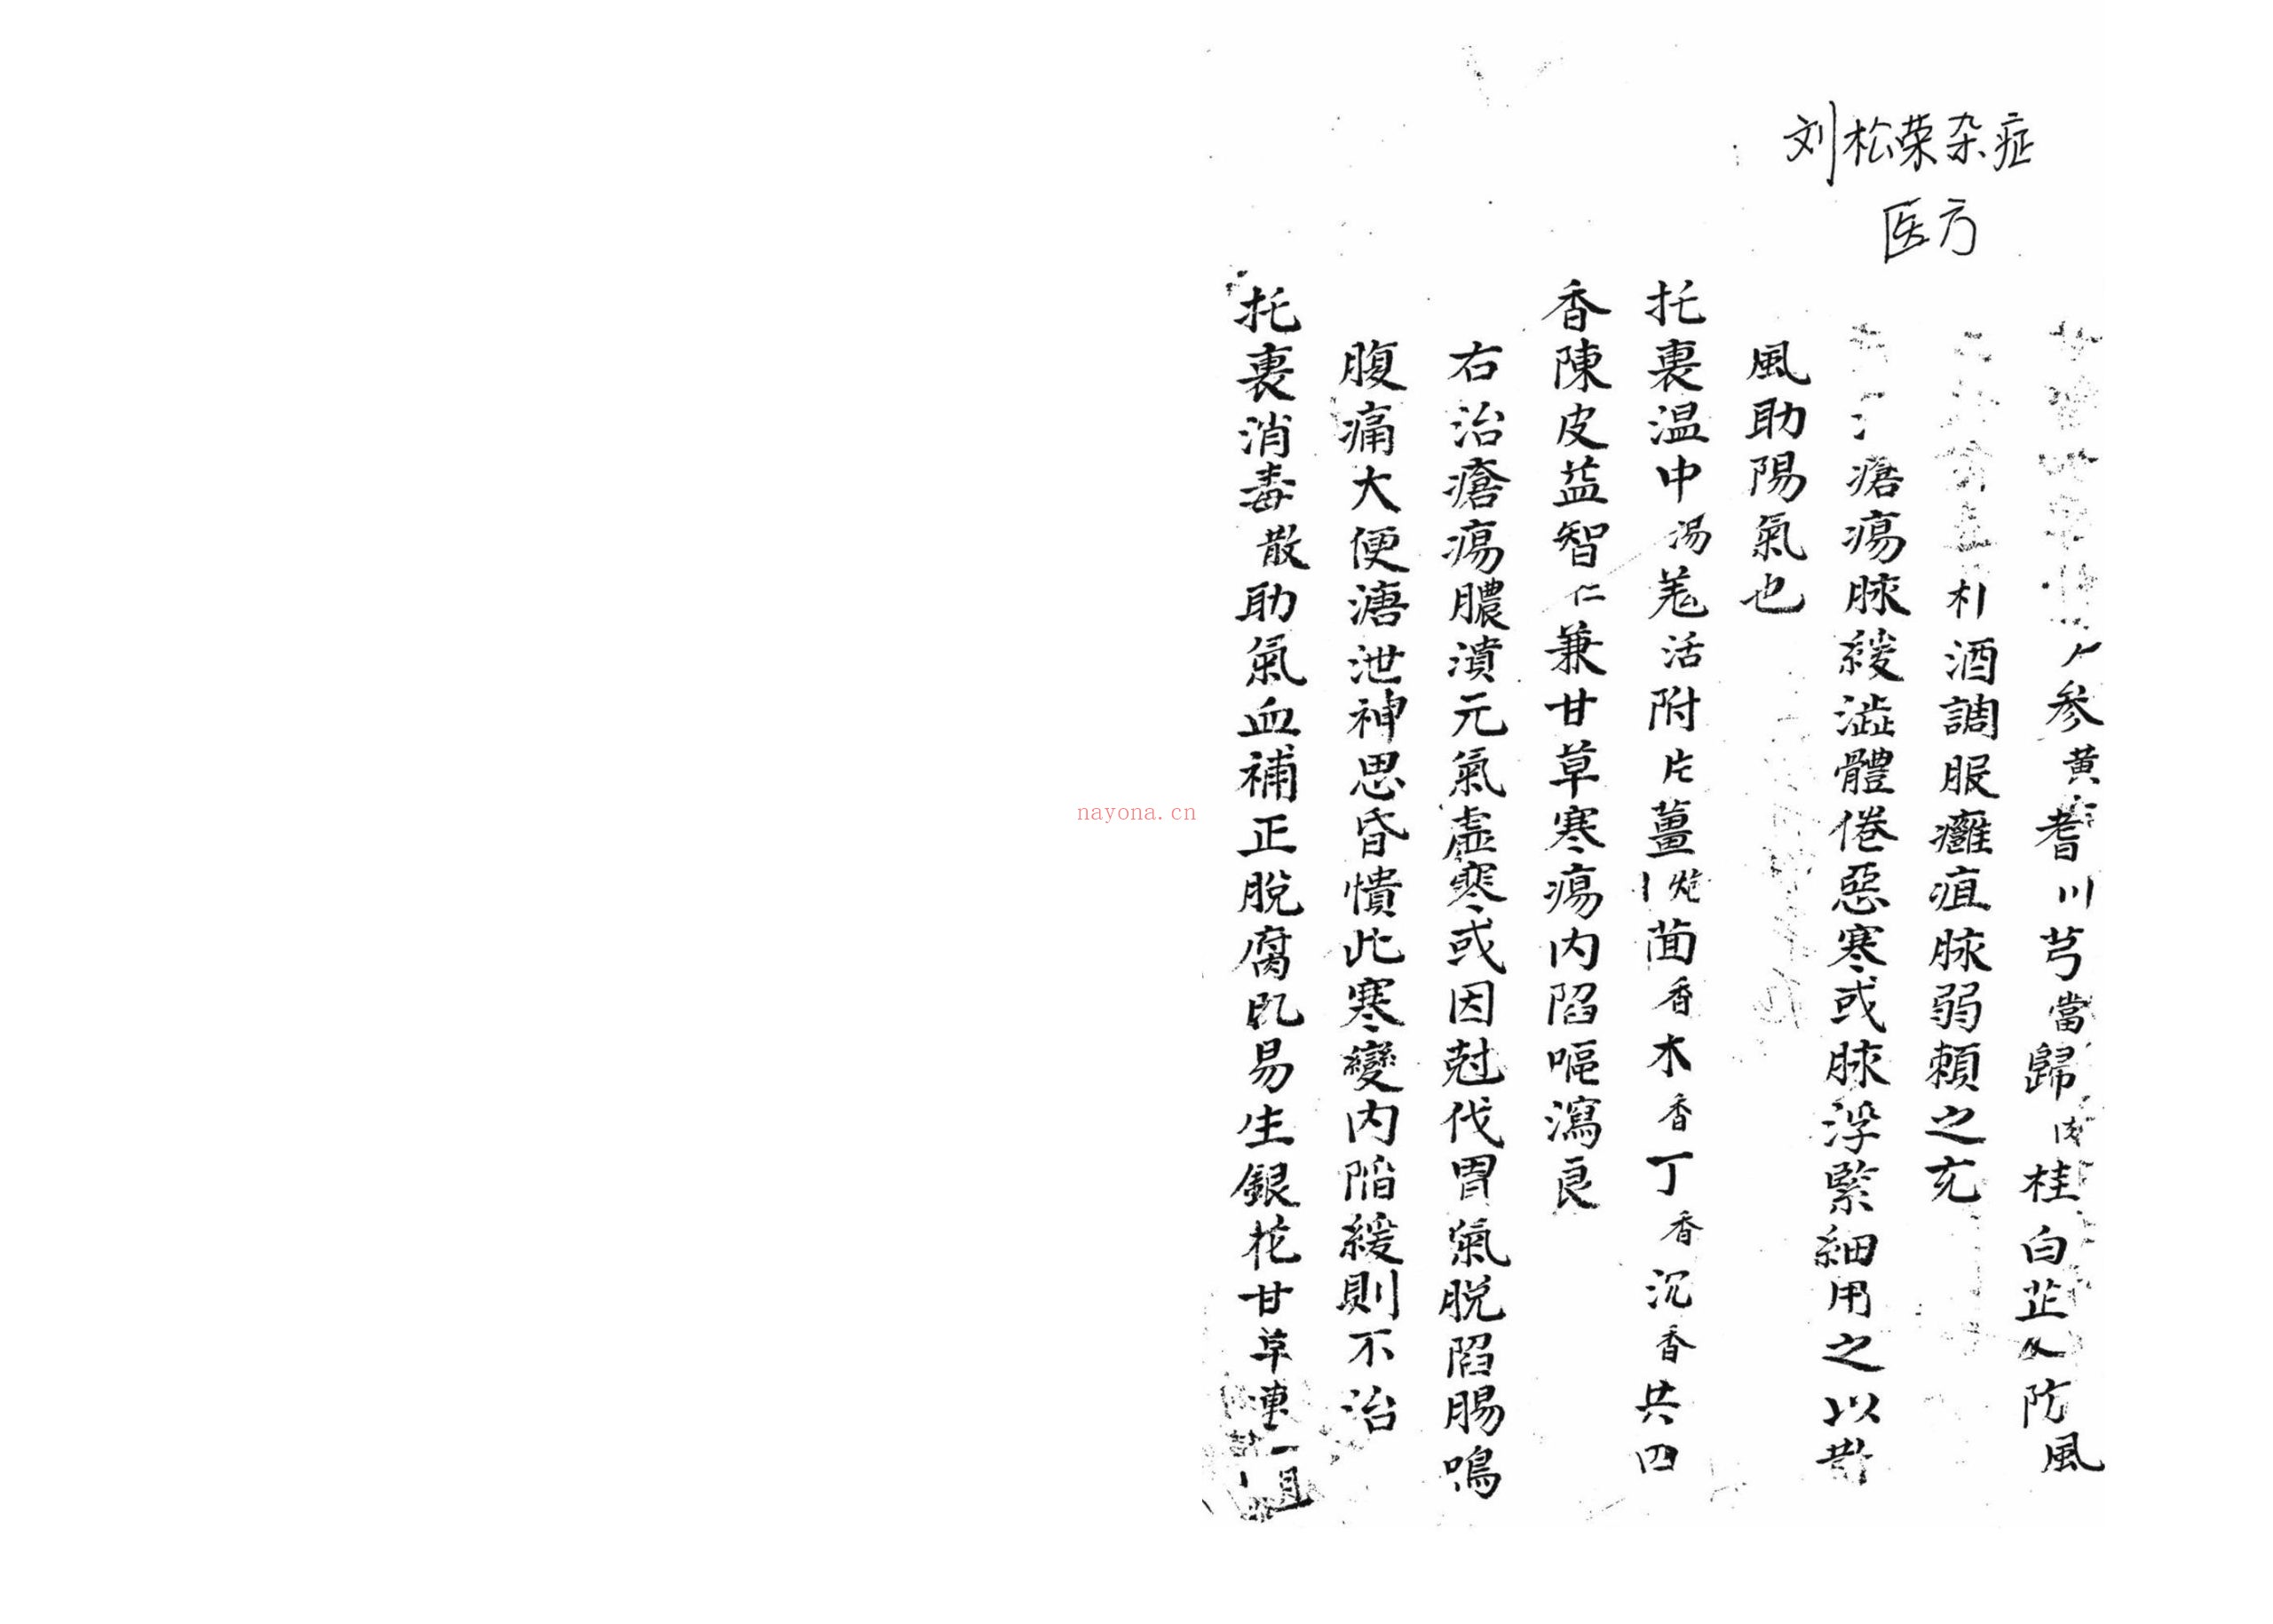 刘松荣杂症
医方
参黄耆川芎當歸肉桂白芷防風
朴酒調服癰疽脉弱賴之充
瘡瘍脉緩澁體倦惡寒或脉浮緊細用之以
風助陽氣也
托裏温中湯羗活附片薑炮茴香木香丁香沉香共四
香陳皮益智仁兼甘草寒瘍内陷嘔瀉良
右治瘡瘍膿潰元氣虚寒或因尅伐胃氣脱陷腸鳴
腹痛大便溏泄神思昏憒此寒變内陷緩則不治
托裏消毒散助氣血補正脫腐肌易生銀花甘草
nayona.cn